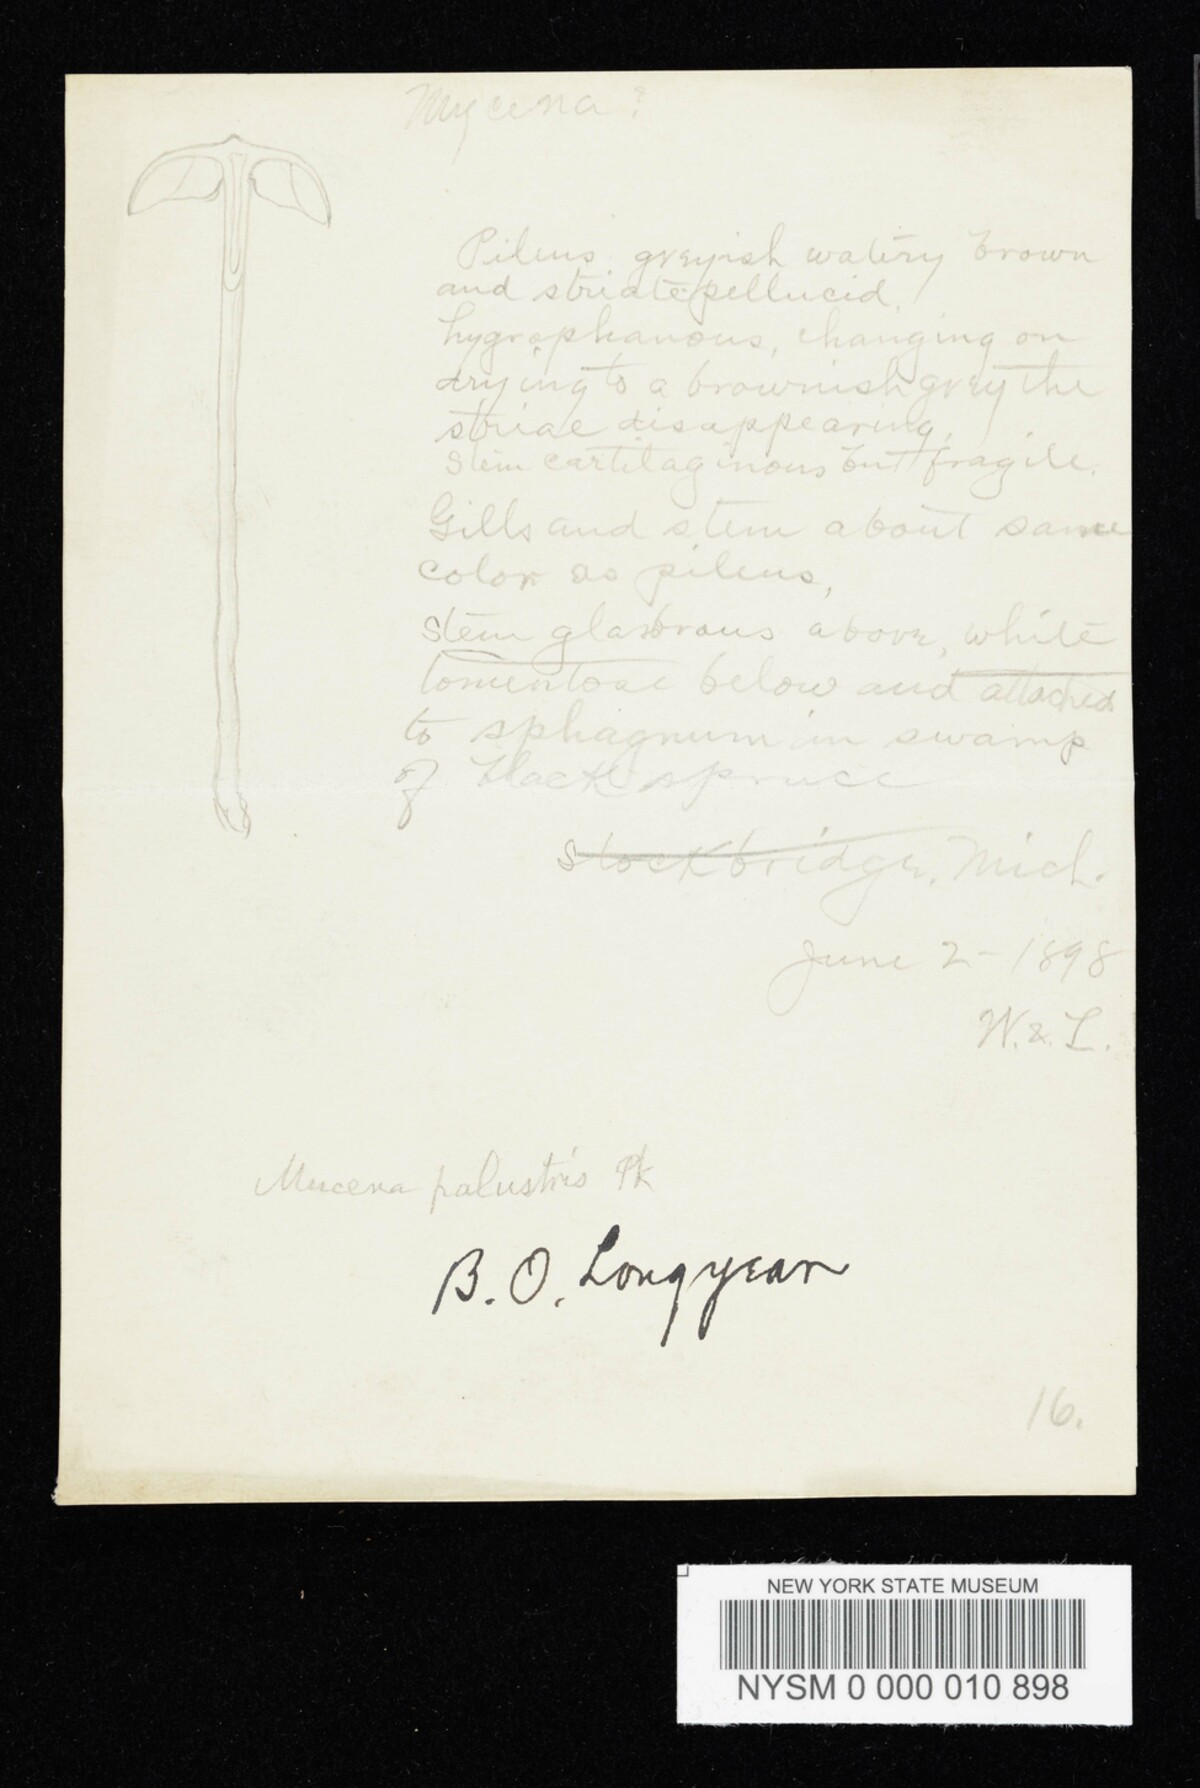 Mycena?
Pileus greyish watery brown
and striate pellucid,
hygrophanous, changing on
drying to a brownish grey the
striae disappearing,
Stem cartilaginous but fragile.
Gills and stem about same
color as pileus,
Stem glabrous above, white
tomentose below and attached
to sphagnum in swamp
of black spruce
Stockbridge, Mich.
June 2 - 1898
W. & L.
Mycena palustris Pk
B. O. Longyear
16.
NEW YORK STATE MUSEUM
NYSM 0 000 010 898